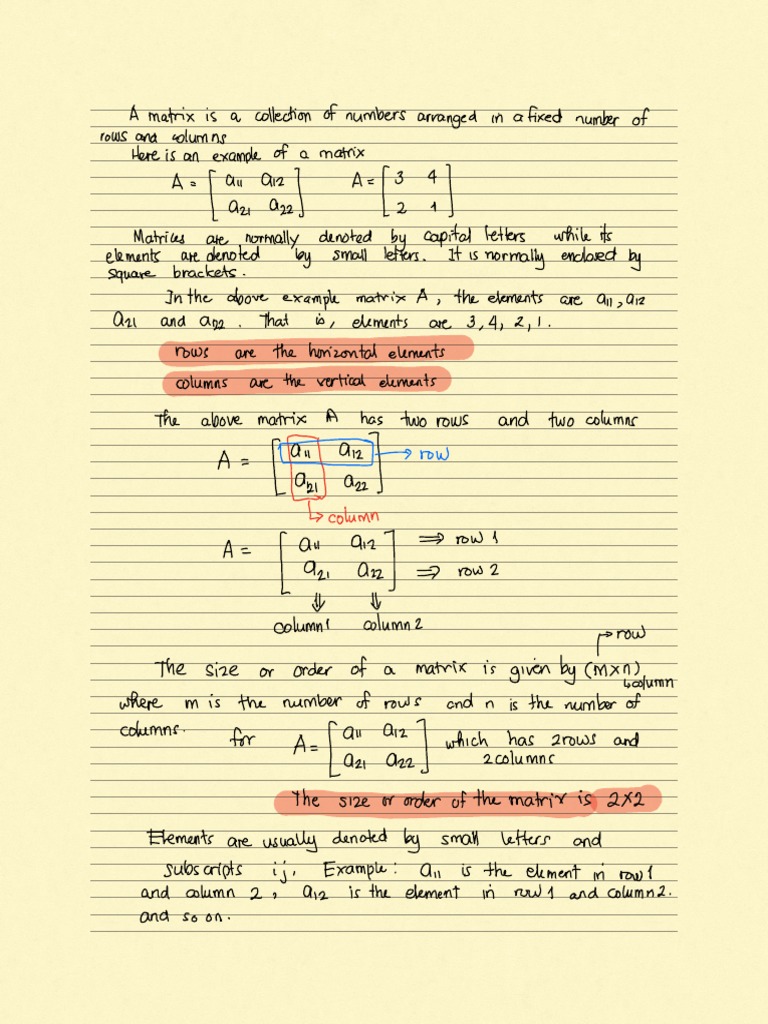 A matrix is a collection of numbers arranged in a fixed number of
rows and columns
Here is an example of a matrix
A = [ a11 a12      A = [ 3 4
a21 a22 ]      2 1 ]
Matrices are normally denoted by capital letters while its
elements are denoted by small letters. It is normally enclosed by
square brackets.
In the above example matrix A, the elements are a11, a12
a21 and a22. That is, elements are 3, 4, 2, 1.
rows are the horizontal elements
columns are the vertical elements
The above matrix A has two rows and two columns
A = [ a11 a12 → row
a21 a22 ]
↳ column
A = [ a11 a12 ⇒ row 1
a21 a22 ] ⇒ row 2
⇓ ⇓
column1 column 2
↱ row
The size or order of a matrix is given by (m×n)
↳column
where m is the number of rows and n is the number of
columns.
for A = [ a11 a12 which has 2rows and
a21 a22 ] 2columns
The size or order of the matrix is 2×2
Elements are usually denoted by small letters and
subscripts ij. Example: a11 is the element in row 1
and column 2, a12 is the element in row 1 and column 2.
and so on.